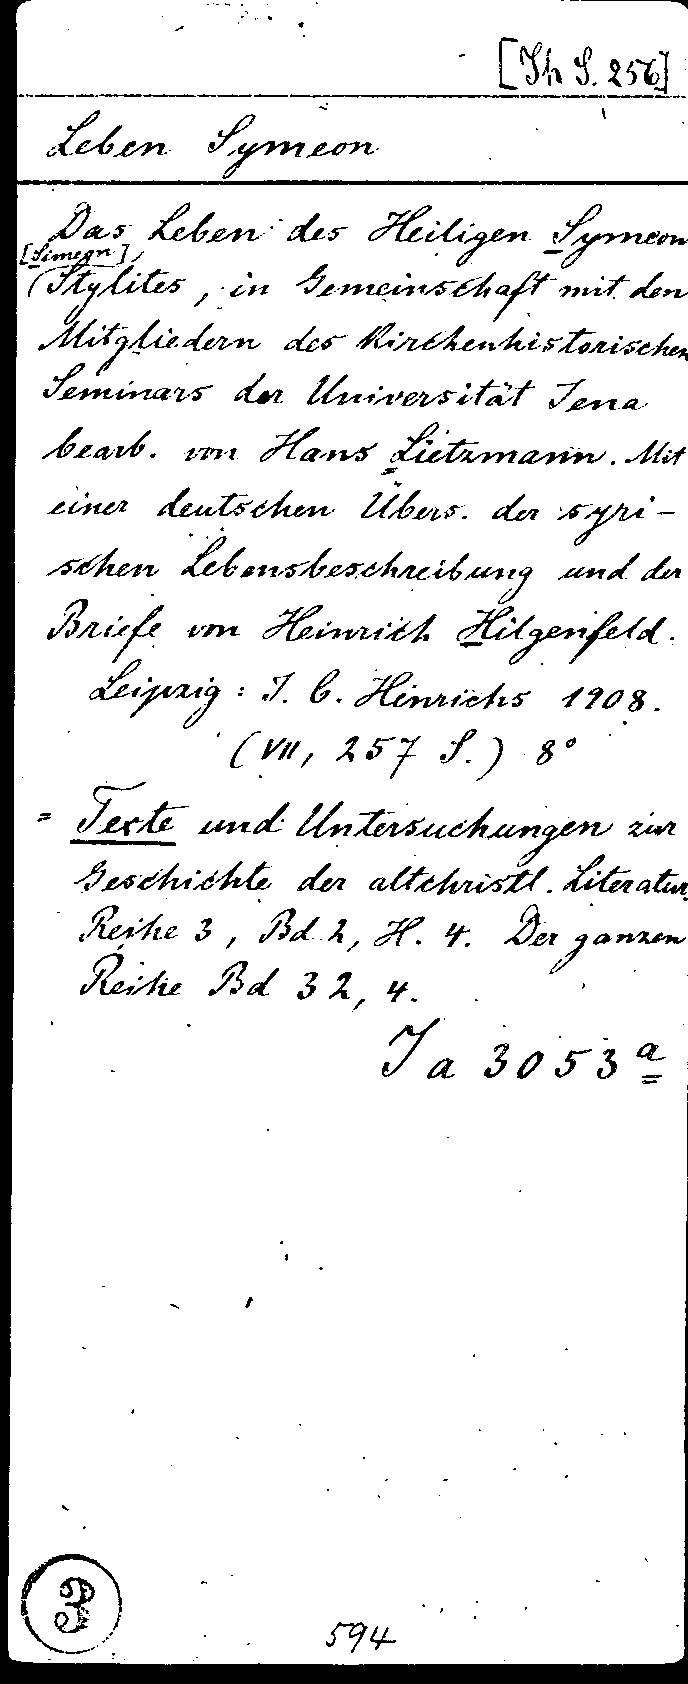 [Th S. 256]
Leben Symeon
Das Leben des Heiligen Symeon
[Simeon],
Stylites, in Gemeinschaft mit den
Mitgliedern des Kirchenhistorischen
Seminars der Universität Jena
bearb. von Hans Lietzmann. Mit
einer deutschen Übers. der syri-
schen Lebensbeschreibung und der
Briefe von Heinrich Hilgenfeld.
Leipzig: J. C. Hinrichs 1908.
(VII, 257 S.) 8°
= Texte und Untersuchungen zur
Geschichte der altchristl. Literatur,
Reihe 3, Bd 2, H. 4. Der ganzen
Reihe Bd 32, 4.
Ja 3053 a
3
594